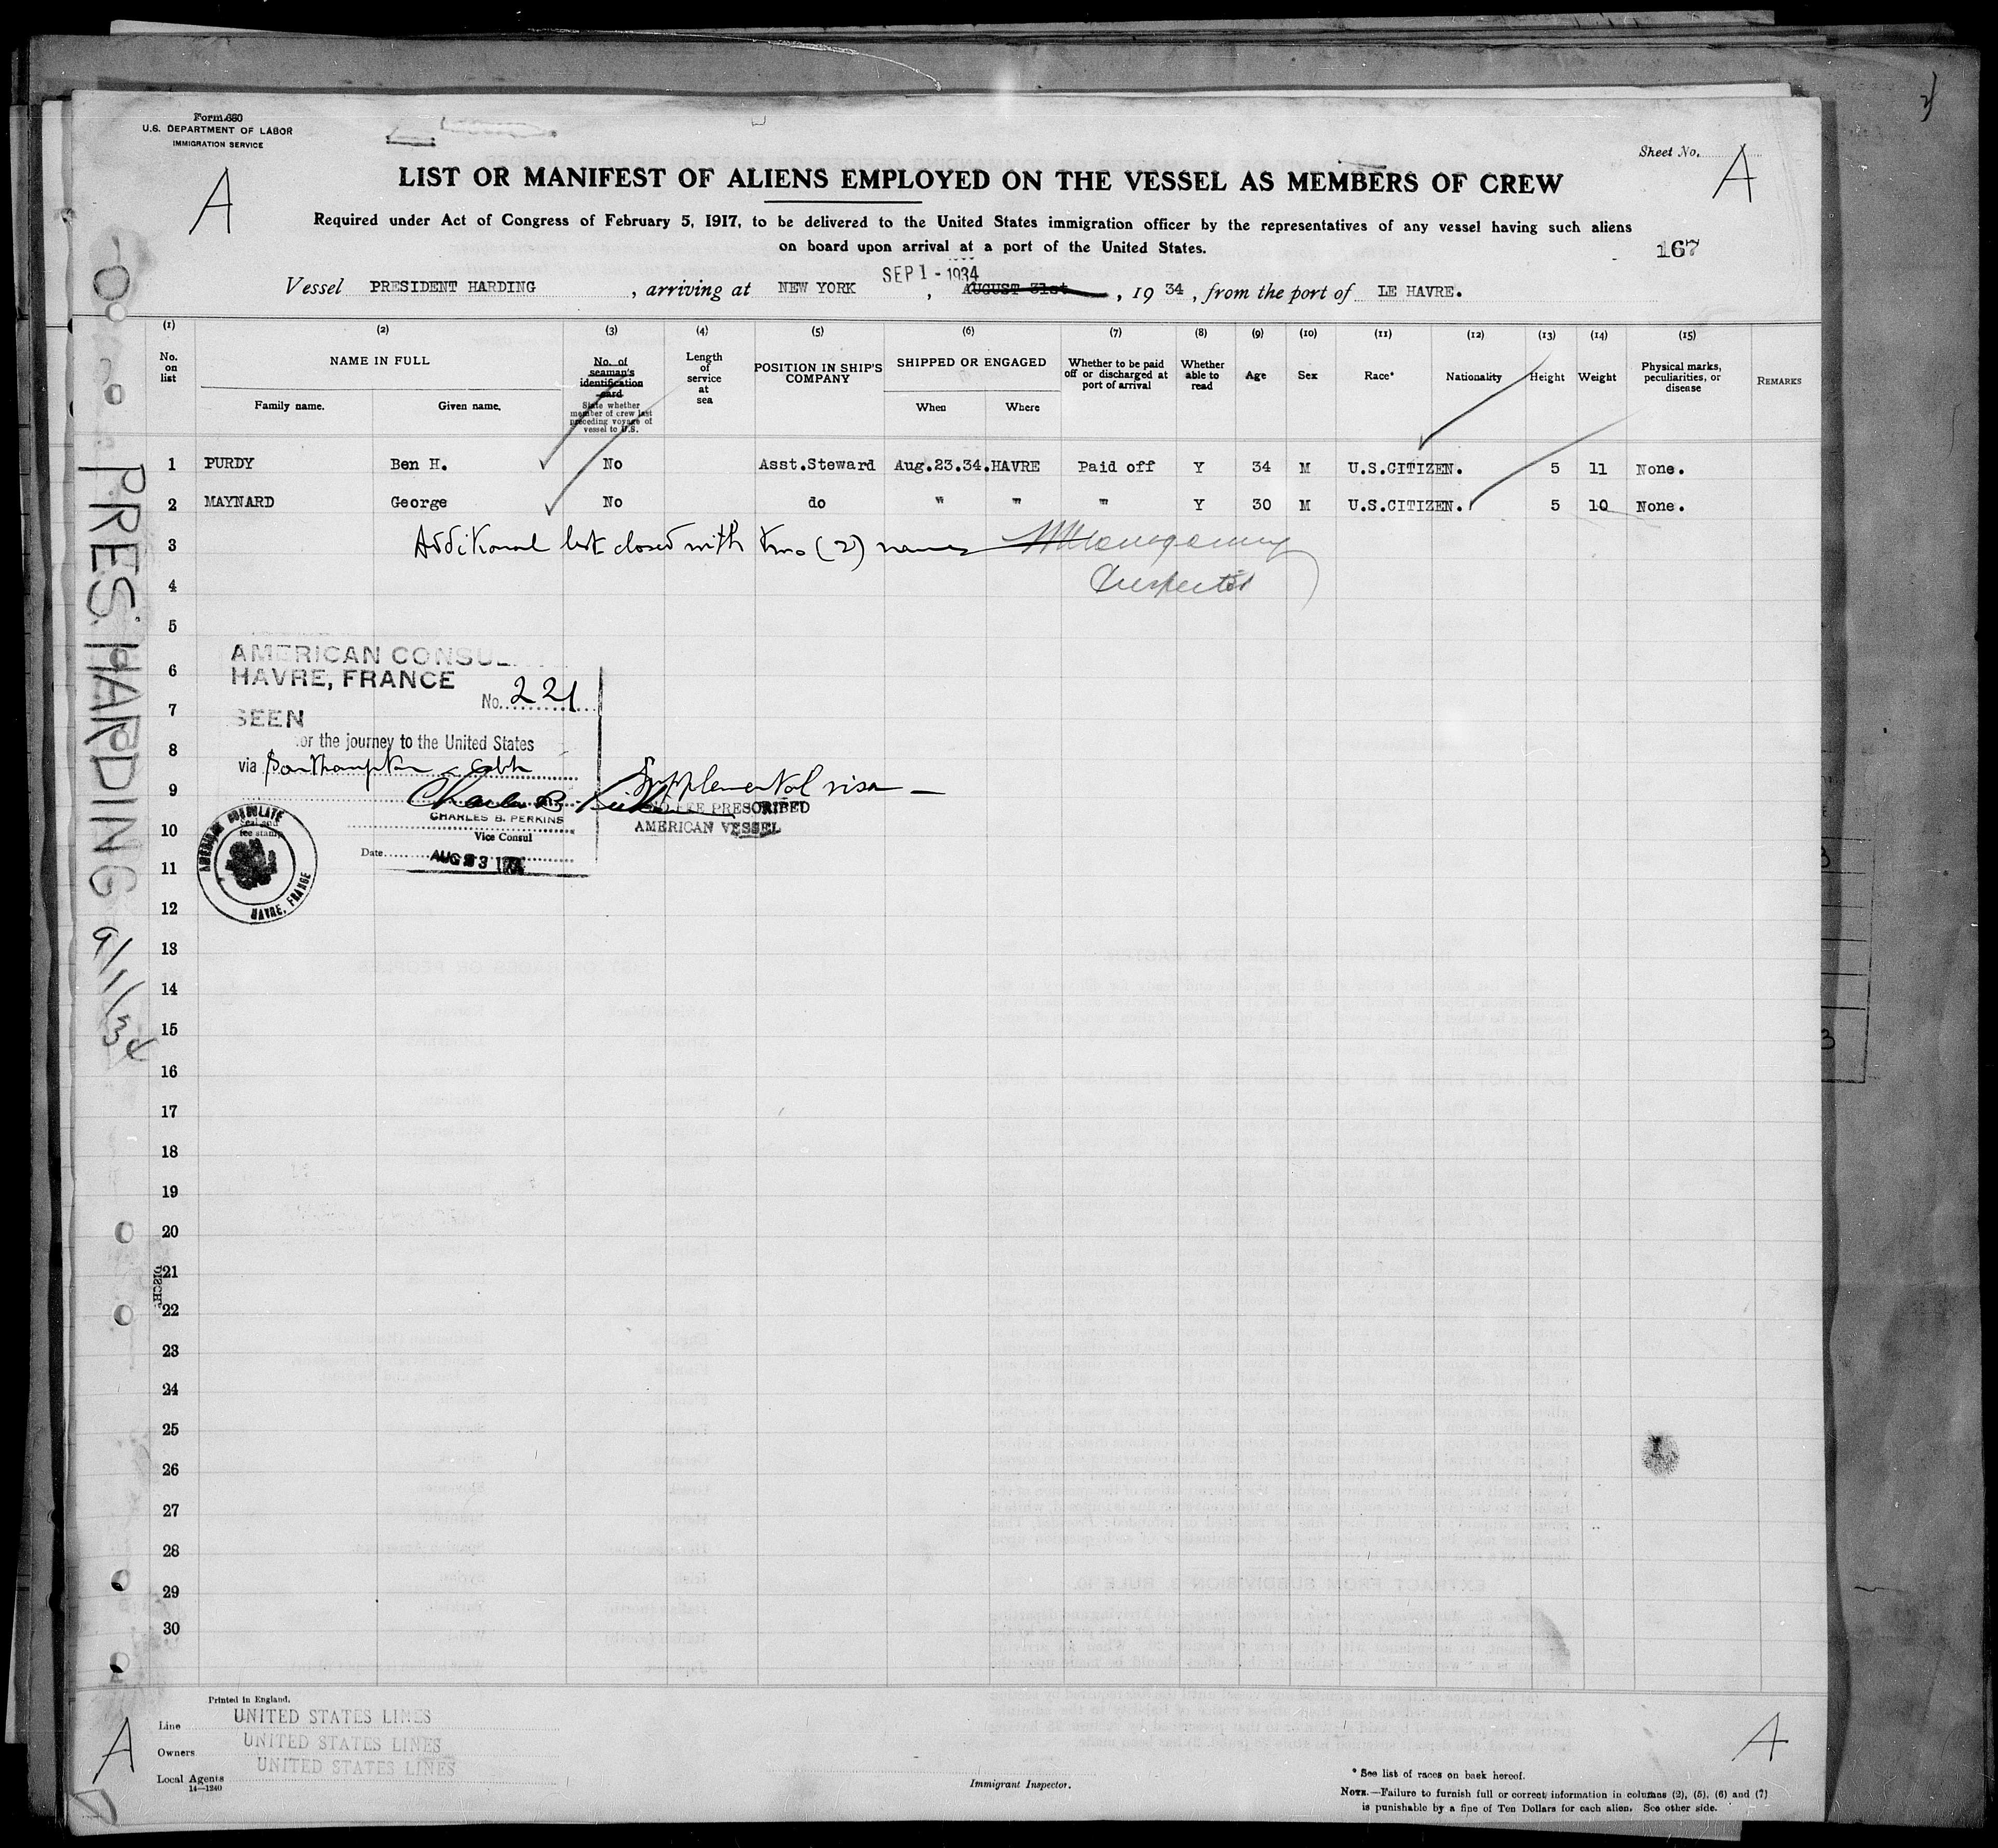 Form 680
U.S. DEPARTMENT OF LABOR
IMMIGRATION SERVICE
Sheet No. A
A
LIST OR MANIFEST OF ALIENS EMPLOYED ON THE VESSEL AS MEMBERS OF CREW
Required under Act of Congress of February 5, 1917, to be delivered to the United States immigration officer by the representatives of any vessel having such aliens
on board upon arrival at a port of the United States.
167
SEP 1 - 1934
Vessel PRESIDENT HARDING, arriving at NEW YORK, AUGUST 31st, 1934, from the port of LE HAVRE.
(1) (2) (3) (4) (5) (6) (7) (8) (9) (10) (11) (12) (13) (14) (15)
No. on list
NAME IN FULL
Family name. Given name.
No. of seaman's identification card
State whether member of crew last preceding voyage of vessel to U.S.
Length of service at sea
POSITION IN SHIP'S COMPANY
SHIPPED OR ENGAGED
When Where
Whether to be paid off or discharged at port of arrival
Whether able to read
Age
Sex
Race*
Nationality
Height
Weight
Physical marks, peculiarities, or disease
REMARKS
1 PURDY Ben H. No Asst.Steward Aug.23.34. HAVRE Paid off Y 34 M U.S.CITIZEN. 5 11 None.
2 MAYNARD George No do " " " Y 30 M U.S.CITIZEN. 5 10 None.
3 Additional list closed with two (2) names
4 Inspector
5
6
7
8
9
10
11
12
13
14
15
16
17
18
19
20
21
22
23
24
25
26
27
28
29
30
AMERICAN CONSUL
HAVRE, FRANCE
No. 221
SEEN
or the journey to the United States
via Southampton Cobh
CHARLES B. PERKINS
Vice Consul
Date
Supplemental visa —
NO FEE PRESCRIBED
AMERICAN VESSEL
AMERICAN CONSULATE
Seal and
fee stamp
HAVRE, FRANCE
PRES. HARDING 9/1/34
DISCH.
Printed in England.
Line UNITED STATES LINES
Owners UNITED STATES LINES
Local Agents UNITED STATES LINES
14—1240
A
Immigrant Inspector.
A
* See list of races on back hereof.
NOTE.—Failure to furnish full or correct information in columns (2), (5), (6) and (7)
is punishable by a fine of Ten Dollars for each alien. See other side.